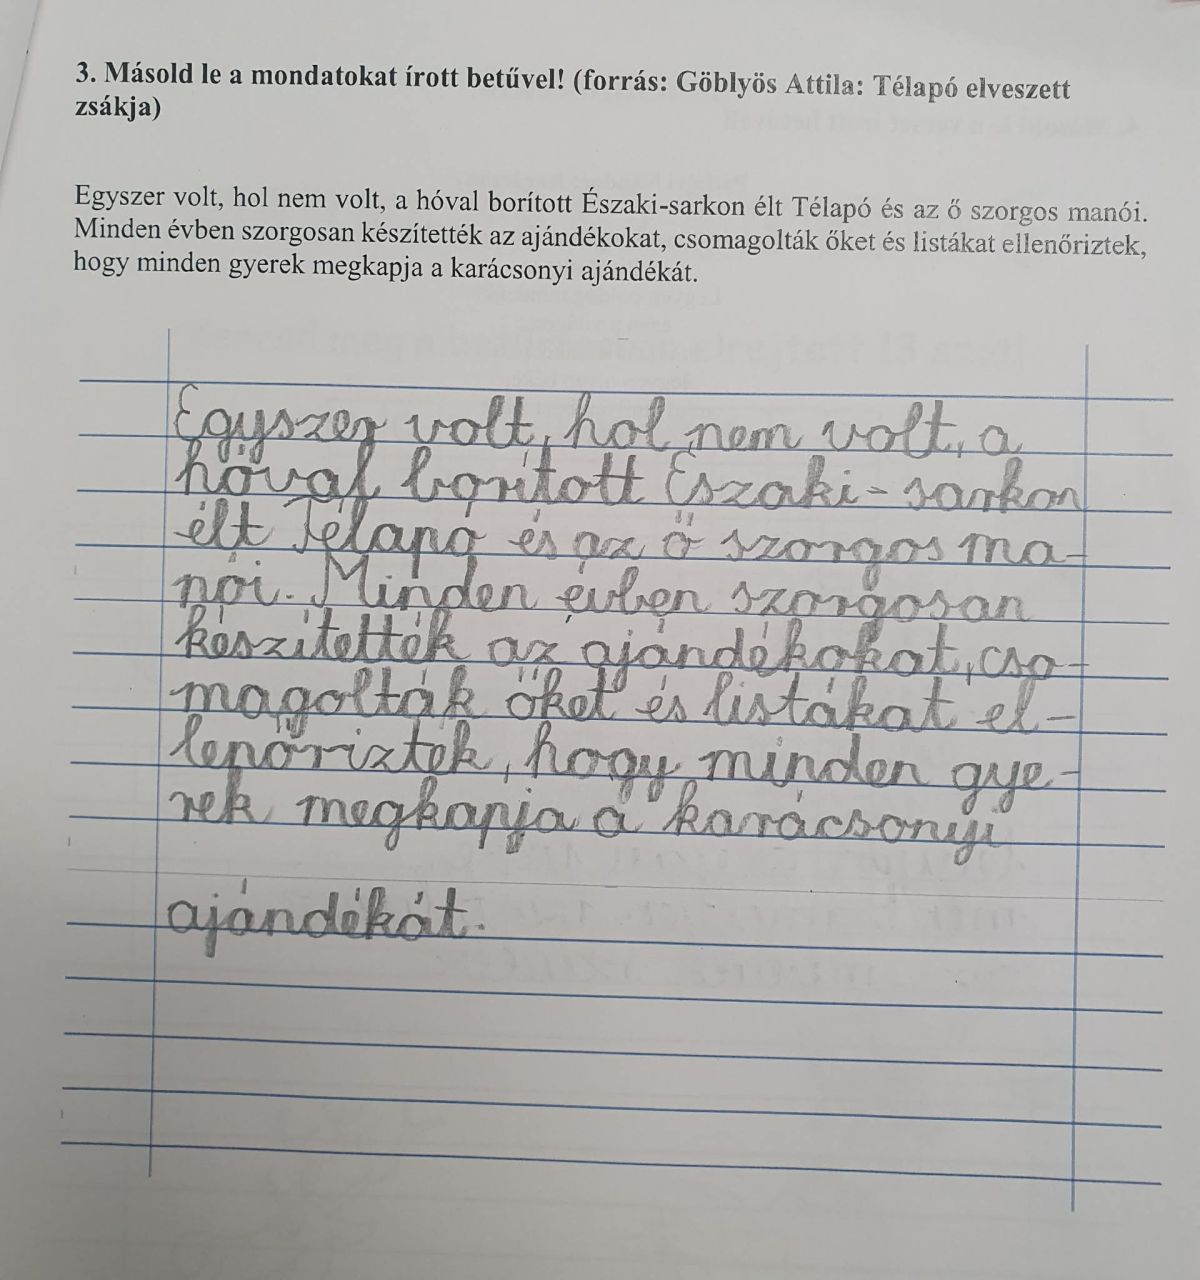 3. Másold le a mondatokat írott betűvel! (forrás: Göblyös Attila: Télapó elveszett
zsákja)
Egyszer volt, hol nem volt, a hóval borított Északi-sarkon élt Télapó és az ő szorgos manói.
Minden évben szorgosan készítették az ajándékokat, csomagolták őket és listákat ellenőriztek,
hogy minden gyerek megkapja a karácsonyi ajándékát.
Egyszer volt, hol nem volt, a
hóval borított Északi-sarkon
élt Télapó és az ő szorgos ma-
nói. Minden évben szorgosan
készítették az ajándékokat, cso-
magolták őket és listákat el-
lenőrizték, hogy minden gye-
rek megkapja a karácsonyi
ajándékát.